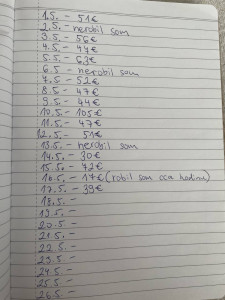 1.5. - 51€
2.5. - nerobil som
3.5. - 56€
4.5. - 44€
5.5. - 63€
6.5 - nerobil som
7.5 - 52€
8.5. - 47€
9.5. - 44€
10.5. - 105€
11.5. - 47€
12.5. - 51€
13.5. - nerobil som
14.5. - 30€
15.5. - 42€
16.5. - 17€ (robil som cca hodinu)
17.5. - 39€
18.5. -
19.5. -
20.5 -
21.5. -
22.5. -
23.5 -
24.5 -
25.5 -
26.5 -